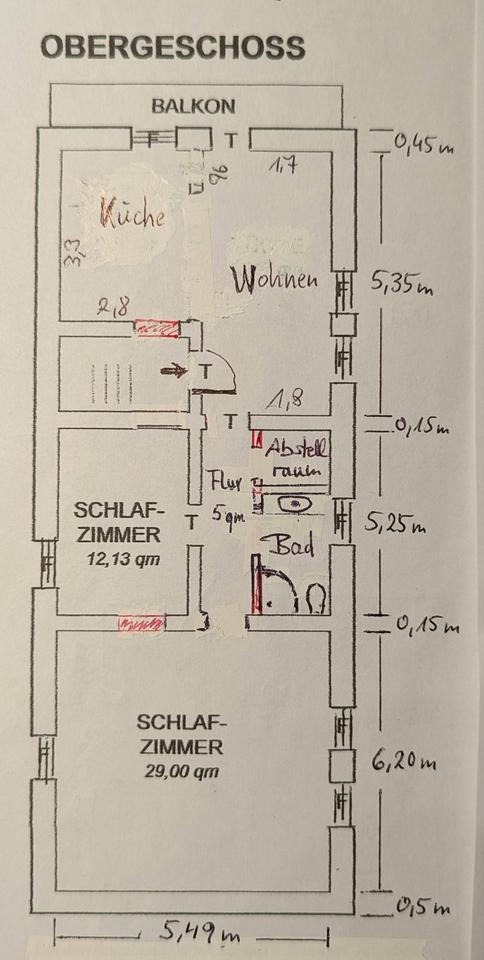 OBERGESCHOSS
BALKON
F
T
0,45 m
1,7
96
Küche
3,3
Wohnen
F
5,35 m
2,8
F
T
1,8
T
0,15 m
Abstell
raum
Flur
5 qm
SCHLAF-
ZIMMER
12,13 qm
T
F
5,25 m
Bad
F
0,15 m
SCHLAF-
ZIMMER
29,00 qm
F
F
6,20 m
F
0,5 m
5,49 m